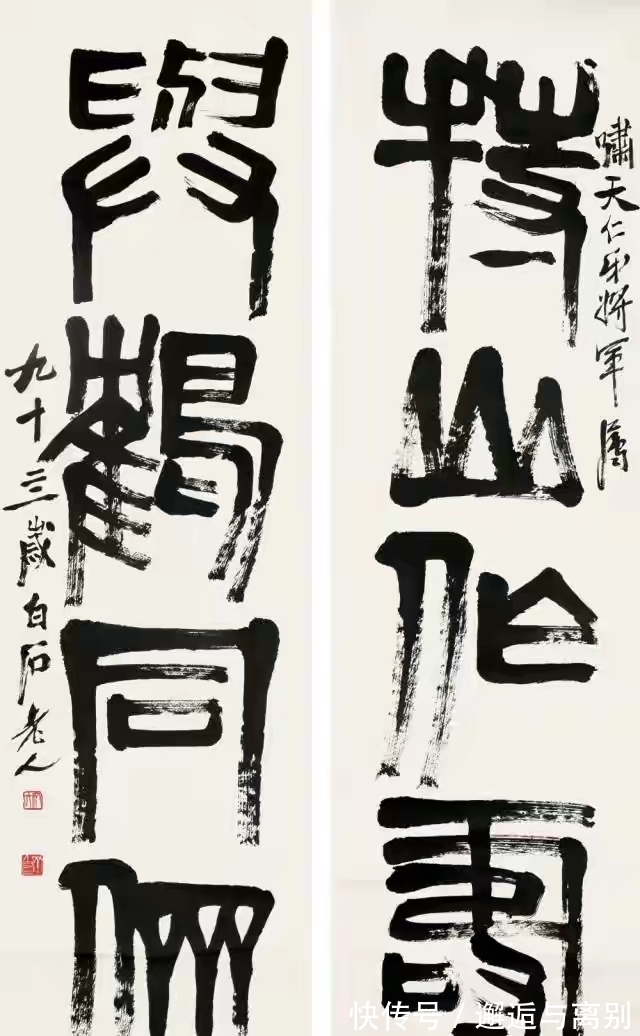 嘯天仁弟將軍屬
持山作壽
與鶴同儕
九十三歲白石老人
快传号 / 邂逅与离别